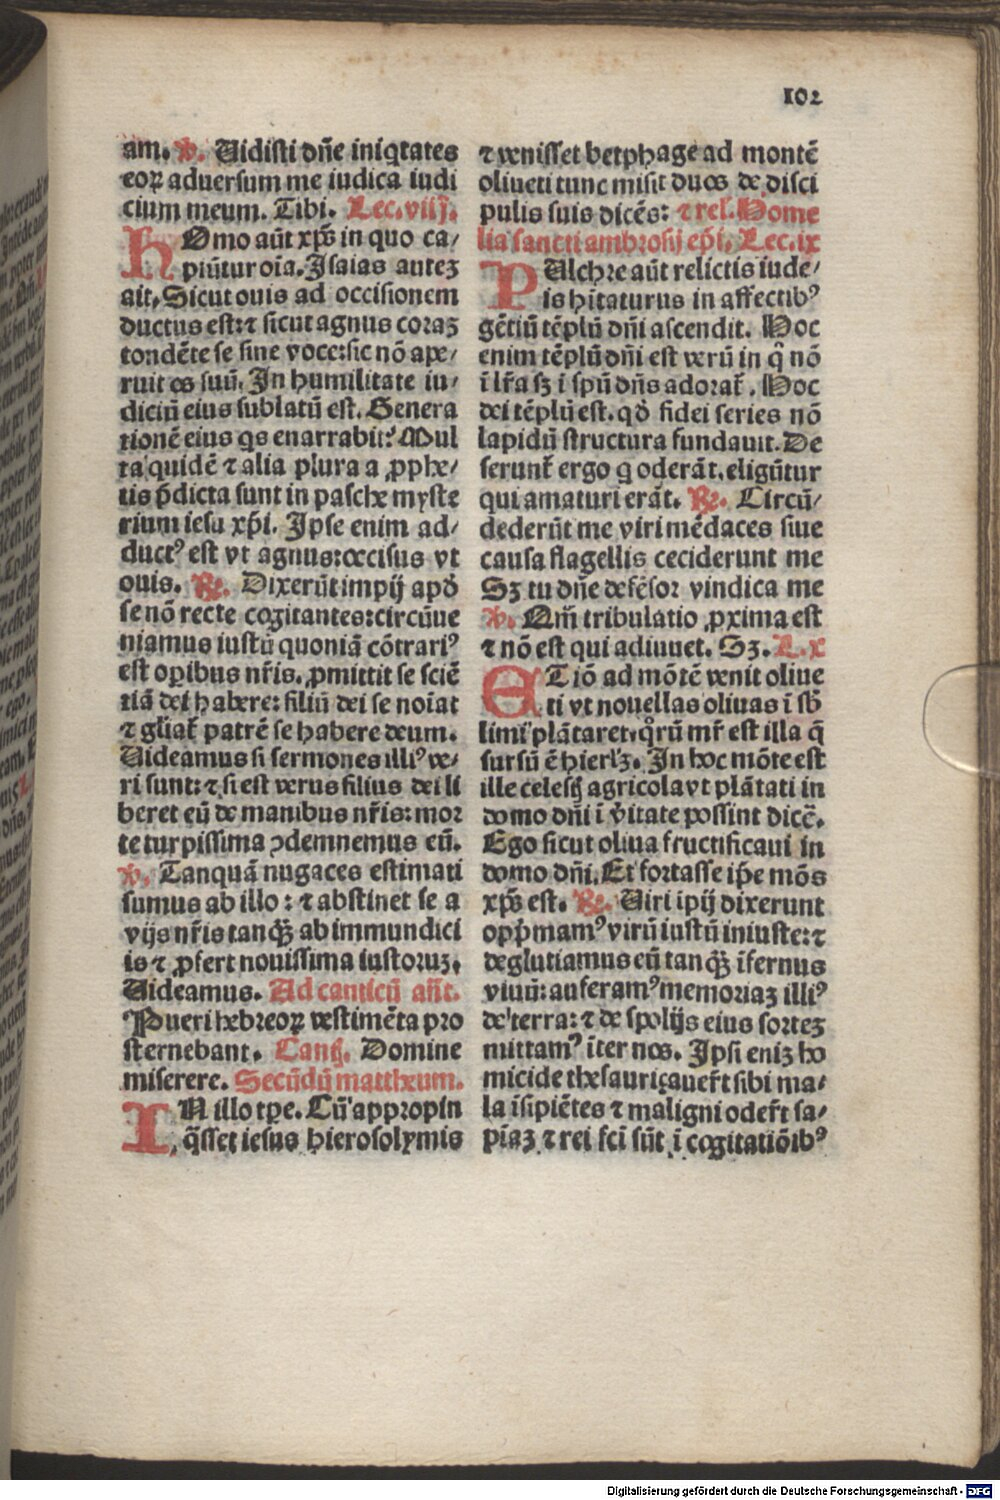 102
am. ℣. Uidisti dñe iniqtates
eoꝝ aduersum me iudica iudi
cium meum. Tibi. Lec. viij.
HOmo aūt xp̄s in quo ca⸗
piūtur oīa. Isaias autez
ait, Sicut ouis ad occisionem
ductus est: ⁊ sicut agnus coraz
tondēte se sine voce: sic nō ape⸗
ruit os suū. In humilitate iu⸗
diciū eius sublatū est. Genera
tionē eius qs enarrabit? Mul
ta quidē ⁊ alia plura a ꝓphe⸗
tis p̄dicta sunt in pasche myste
rium iesu xp̄i. Ipse enim ad⸗
ductꝰ est vt agnus: occisus vt
ouis. ℟. Dixerūt impij apđ
se nō recte cogitantes: circūue
niamus iustū quoniā cōtrariꝰ
est oꝑibus nr̄is. ꝓmittit se sciē
tiā dei habere: filiū dei se noīat
⁊ gl̄iat̄ patrē se habere deum.
Uideamus si sermones illiꝰ ve⸗
ri sunt: ⁊ si est verus filius dei li
beret eū de manibus nr̄is: mor
te turpissima ꝯdemnemus eū.
℣. Tanquā nugaces estimati
sumus ab illo: ⁊ abstinet se a
vijs nr̄is tanqꝫ ab immundici
is ⁊ ꝓfert nouissima iustoruz.
Uideamus. Ad canticū añt.
Pueri hebreoꝝ vestimēta pro
sternebant. Cantꝫ. Domine
miserere. Secūdū mattheum.
IN illo tꝑe. Cū appropin
q̄sset iesus hierosolymis
⁊ venisset betphage ad montē
oliueti tunc misit duos de disci
pulis suis dicēs: ⁊ rel. Home
lia sancti ambrosij ep̄i. Lec. ix
PUlchre aūt relictis iude⸗
is hītaturus in affectibꝰ
gētiū tēplū dñi ascendit. Hoc
enim tēplū dñi est verū in q̄ nō
ī lr̄a sꝫ ī spū dñs adorat̄. Hoc
dei tēplū est. qđ fidei series nō
lapidū structura fundauit. De
serunt̄ ergo q oderāt. eligūtur
qui amaturi erāt. ℟. Circū⸗
dederūt me viri mēdaces siue
causa flagellis ceciderunt me
Sꝫ tu dñe defēsor vindica me
℣. Qm̄ tribulatio ꝓxima est
⁊ nō est qui adiuuet. Sꝫ. L. x
ETiō ad mōtē venit oliue
ti vt nouellas oliuas ī sb̄
limi plātaret. qͦrū mr̄ est illa q̄
sursū ē hierl̄z. In hoc mōte est
ille celestꝭ agricola vt plātati in
domo dñi ī v̄itate possint dicē.
Ego sicut oliua fructificaui in
domo dñi. Et fortasse ip̄e mōs
xp̄s est. ℟. Uiri ipij dixerunt
opp̄mamꝰ virū iustū iniuste: ⁊
deglutiamus eū tanqꝫ īfernus
viuū: auferamꝰ memoriaz illiꝰ
de terra: ⁊ de spolijs eius sortez
mittamꝰ īter nos. Ipsi eniz ho
micide thesauriçauer̄t sibi ma⸗
la īsipiētes ⁊ maligni oder̄t sa⸗
pīaz ⁊ rei fc̄i sūt ī cogitatiōibꝰ
Digitalisierung gefördert durch die Deutsche Forschungsgemeinschaft - DFG